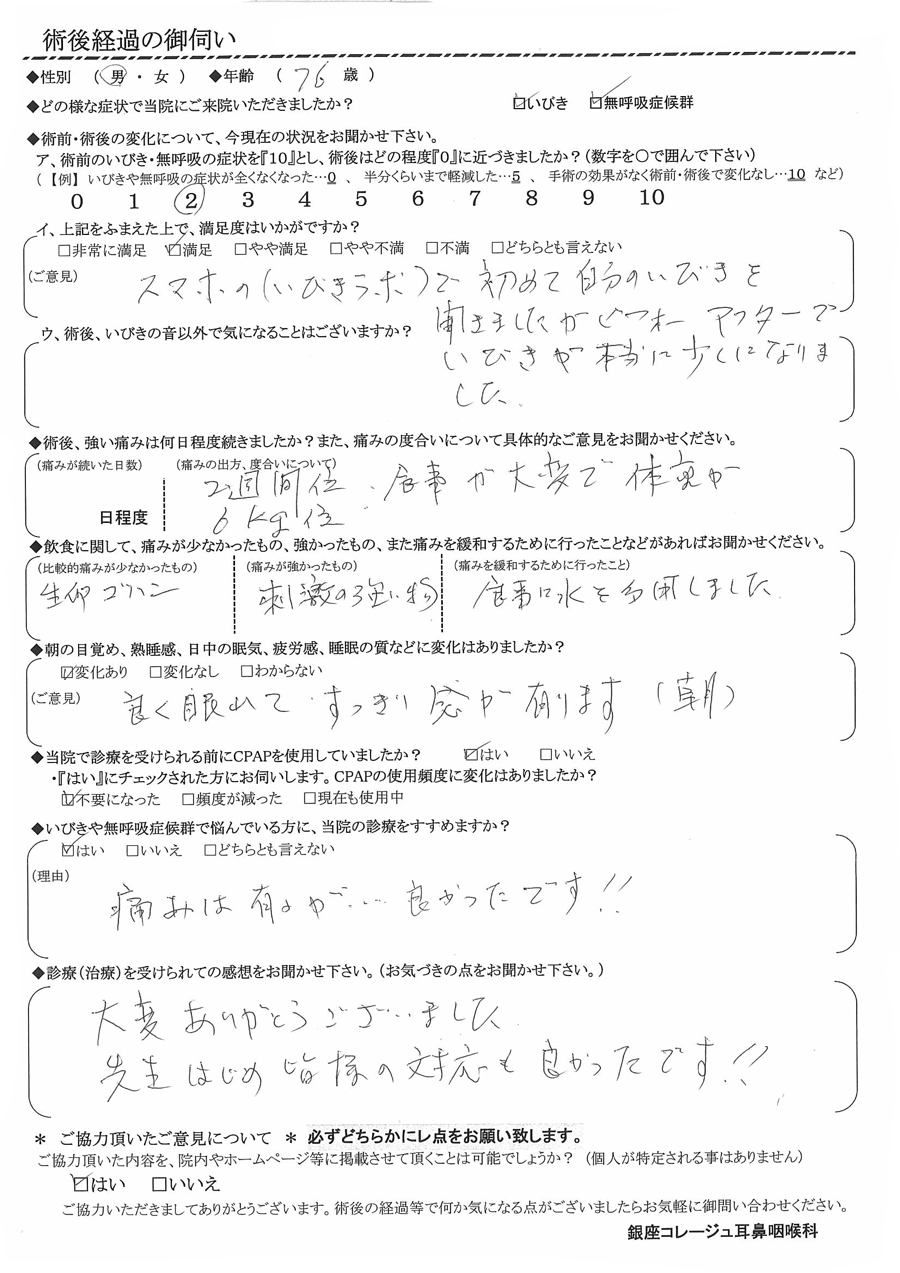 術後経過の御伺い
◆性別 （ 男 ・ 女 ） ◆年齢 （ 76 歳 ）
◆どの様な症状で当院にご来院いただきましたか？ ☑いびき ☑無呼吸症候群
◆術前・術後の変化について、今現在の状況をお聞かせ下さい。
ア、術前のいびき・無呼吸の症状を『10』とし、術後はどの程度『0』に近づきましたか？（数字を○で囲んで下さい）
（ 【例】 いびきや無呼吸の症状が全くなくなった…0 、 半分くらいまで軽減した…5 、 手術の効果がなく術前・術後で変化なし…10 など）
0 1 2 3 4 5 6 7 8 9 10
イ、上記をふまえた上で、満足度はいかがですか？
□非常に満足 ☑満足 □やや満足 □やや不満 □不満 □どちらとも言えない
（ご意見） スマホの（いびきラボ）で 初めて自分のいびきを
聞きましたが ビフォー アフターで
ウ、術後、いびきの音以外で気になることはございますか？
いびきが本当に少くになりま
した.
◆術後、強い痛みは何日程度続きましたか？また、痛みの度合いについて具体的なご意見をお聞かせください。
（痛みが続いた日数） （痛みの出方、度合いについて）
2週間位 . 食事が大変で 体重が
日程度 6kg位
◆飲食に関して、痛みが少なかったもの、強かったもの、また痛みを緩和するために行ったことなどがあればお聞かせください。
（比較的痛みが少なかったもの） （痛みが強かったもの） （痛みを緩和するために行ったこと）
刺激の強い物 食事に水を多用しました.
◆朝の目覚め、熟睡感、日中の眠気、疲労感、睡眠の質などに変化はありましたか？
☑変化あり □変化なし □わからない
（ご意見） 良く眠れて すっきり感が有ります（朝）
◆当院で診療を受けられる前にCPAPを使用していましたか？ ☑はい □いいえ
・『はい』にチェックされた方にお伺いします。CPAPの使用頻度に変化はありましたか？
☑不要になった □頻度が減った □現在も使用中
◆いびきや無呼吸症候群で悩んでいる方に、当院の診療をすすめますか？
☑はい □いいえ □どちらとも言えない
（理由）
痛みは有るが…. 良かったです!!
◆診療（治療）を受けられての感想をお聞かせ下さい。（お気づきの点をお聞かせ下さい。）
大変ありがとうございました
先生はじめ皆様の対応も良かったです!!
＊ ご協力頂いたご意見について ＊ 必ずどちらかにレ点をお願い致します。
ご協力頂いた内容を、院内やホームページ等に掲載させて頂くことは可能でしょうか？ （個人が特定される事はありません）
☑はい □いいえ
ご協力いただきましてありがとうございます。術後の経過等で何か気になる点がございましたらお気軽に御問い合わせください。
銀座コレージュ耳鼻咽喉科